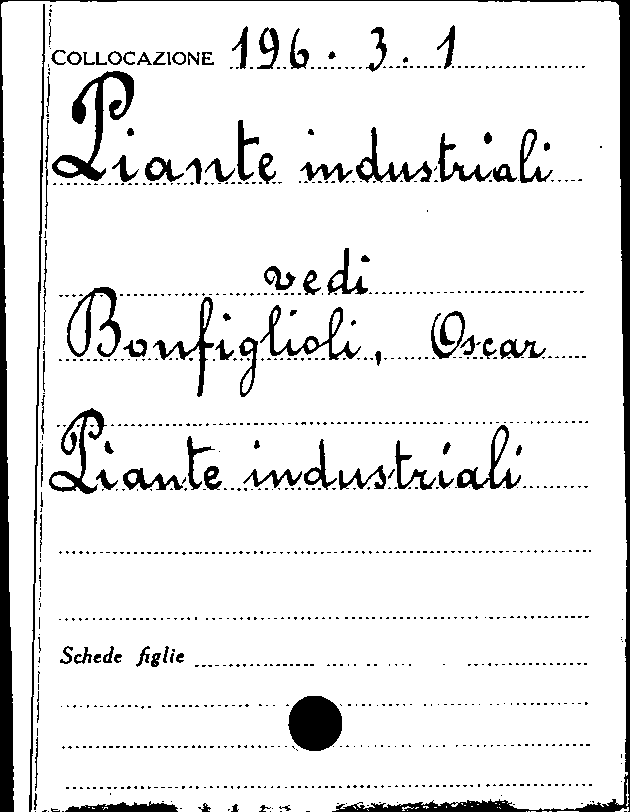 COLLOCAZIONE 196. 3. 1
Piante industriali
vedi
Bonfiglioli, Oscar
Piante industriali
Schede figlie